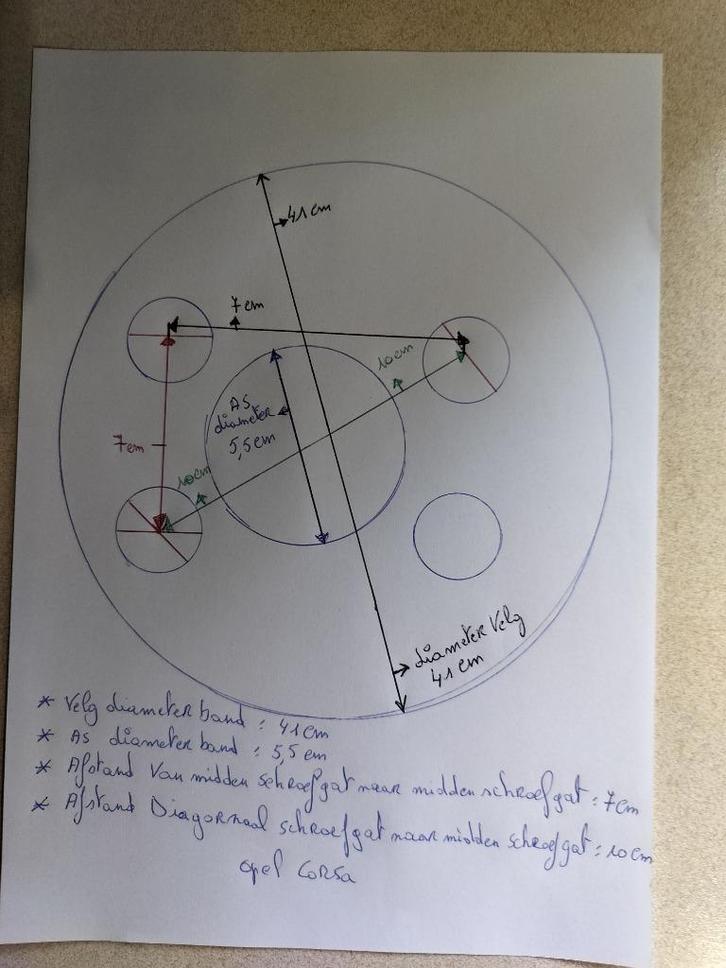 41 cm
7 cm
10 cm
As
diameter
5,5 cm
7 cm
10 cm
diameter Velg
41 cm
* Velg diameter band : 41 cm
* As diameter band : 5,5 cm
* Afstand Van midden schroefgat naar midden schroefgat : 7 cm
* Afstand Diagornaal schroefgat naar midden schroefgat : 10 cm
opel Corsa